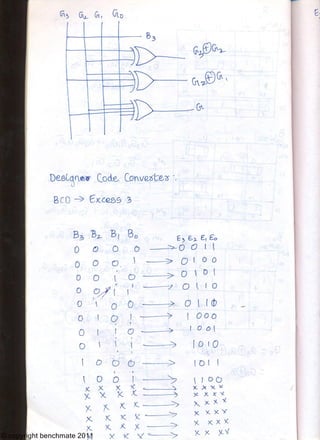 G3 G2 G1 G0
B3
G3⊕G2
G2⊕G1
G
Designer Code Converter :
BCD → Excess 3
B3 B2 B1 B0 E3 E2 E1 E0
0 0 0 0 → 0 0 1 1
0 0 0 1 → 0 1 0 0
0 0 1 0 → 0 1 0 1
0 0 1 1 → 0 1 1 0
0 1 0 0 → 0 1 1 0
0 1 0 1 → 1 0 0 0
0 1 1 0 → 1 0 0 1
0 1 1 1 → 1 0 1 0
1 0 0 0 → 1 0 1 1
1 0 0 1 → 1 1 0 0
X X X X → X X X X
X X X X → X X X X
X X X X → X X X X
X X X X → X X X X
X X X X → X X X X
X X X X → X X X X
copyright benchmate 2011